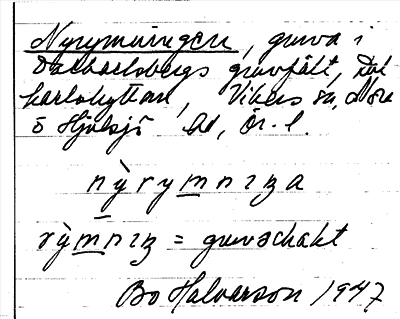 Nyrymningen, gruva i
Dalkarlsbergs gruvfält, Dal
karlshyttan, Vikers sn, Nora
o Hjulsjö bd, Ör. l.
nỳrymnɪŋa
rỳmnɪŋ = gruvschakt
Bo Halvarson 1947